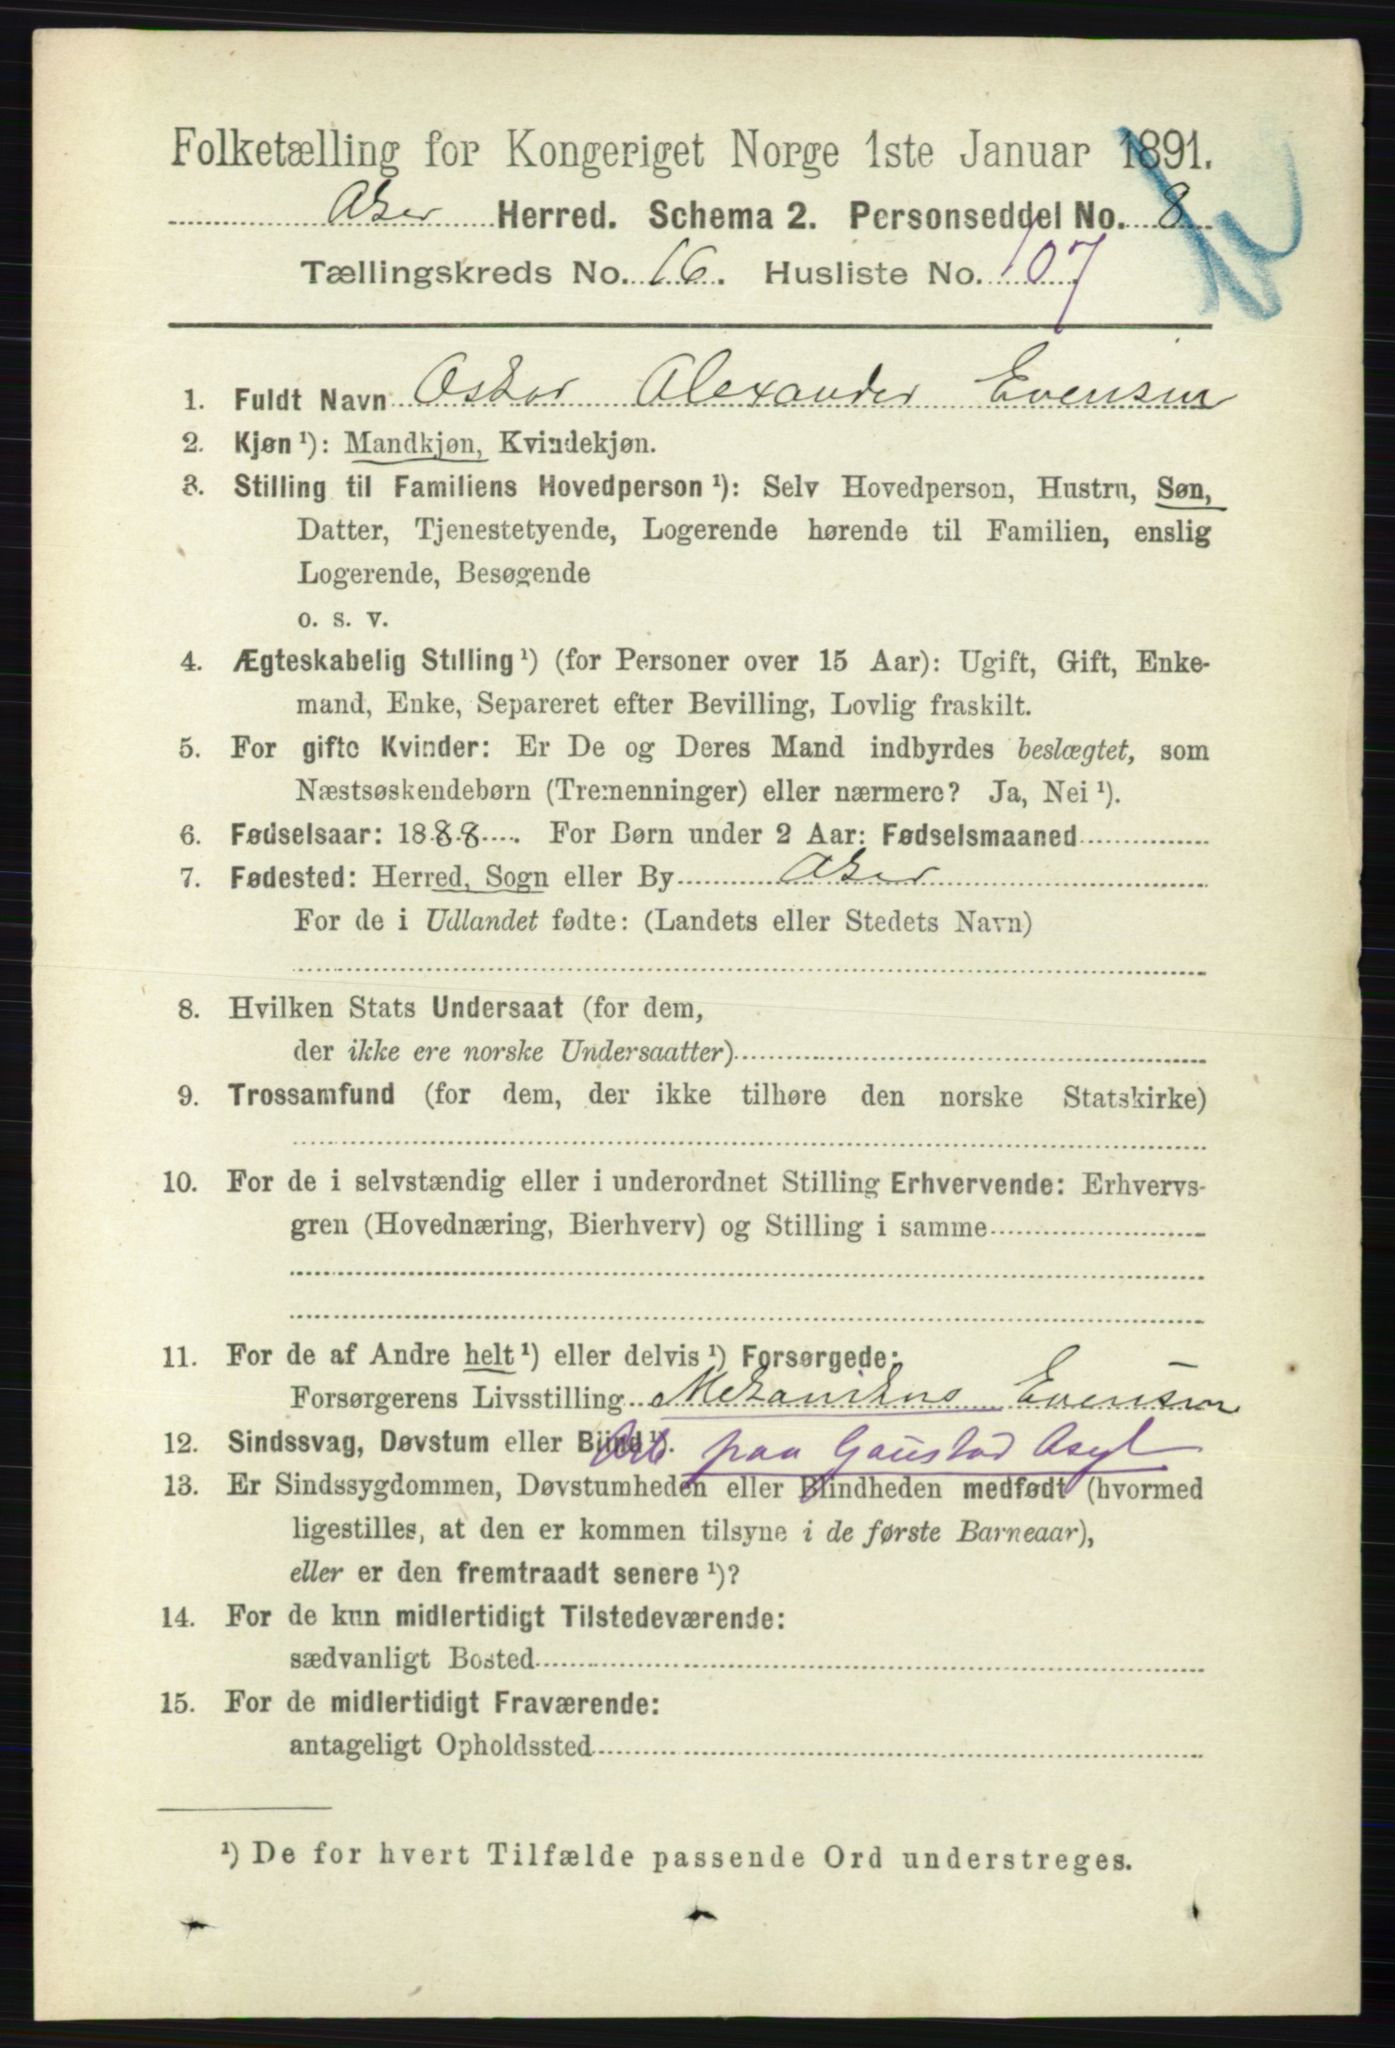 Folketælling for Kongeriget Norge 1ste Januar 1891.
Aker Herred. Schema 2. Personseddel No. 8
Tællingskreds No. 16. Husliste No. 107
1. Fuldt Navn Oskar Alexander Evensen
2. Kjøn ¹): Mandkjøn, Kvindekjøn.
3. Stilling til Familiens Hovedperson ¹): Selv Hovedperson, Hustru, Søn,
Datter, Tjenestetyende, Logerende hørende til Familien, enslig
Logerende, Besøgende
o. s. v.
4. Ægteskabelig Stilling ¹) (for Personer over 15 Aar): Ugift, Gift, Enke-
mand, Enke, Separeret efter Bevilling, Lovlig fraskilt.
5. For gifte Kvinder: Er De og Deres Mand indbyrdes beslægtet, som
Næstsøskendebørn (Tremenninger) eller nærmere? Ja, Nei ¹).
6. Fødselsaar: 1888. For Børn under 2 Aar: Fødselsmaaned
7. Fødested: Herred, Sogn eller By Aker
For de i Udlandet fødte: (Landets eller Stedets Navn)
8. Hvilken Stats Undersaat (for dem,
der ikke ere norske Undersaatter)
9. Trossamfund (for dem, der ikke tilhøre den norske Statskirke)
10. For de i selvstændig eller i underordnet Stilling Erhvervende: Erhvervs-
gren (Hovednæring, Bierhverv) og Stilling i samme
11. For de af Andre helt ¹) eller delvis ¹) Forsørgede:
Forsørgerens Livsstilling Mekanikus Evensen
12. Sindssvag, Døvstum eller Blind ¹). paa Gaustad Asyl
13. Er Sindssygdommen, Døvstumheden eller Blindheden medfødt (hvormed
ligestilles, at den er kommen tilsyne i de første Barneaar),
eller er den fremtraadt senere ¹)?
14. For de kun midlertidigt Tilstedeværende:
sædvanligt Bosted
15. For de midlertidigt Fraværende:
antageligt Opholdssted
¹) De for hvert Tilfælde passende Ord understreges.